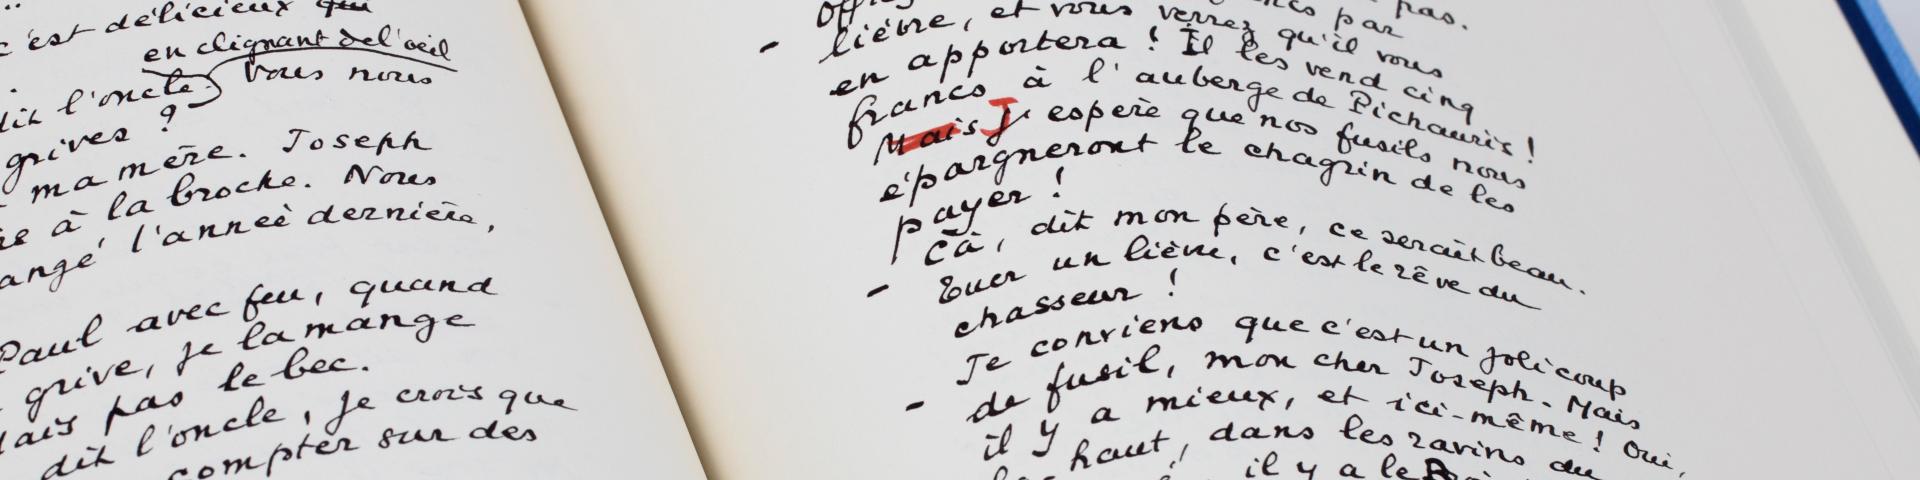 c'est délicieux qui
en clignant de l'oeil
dit l'oncle. Vous nous
grives ?
ma mère. Joseph
à la broche. Nous
angé l'année dernière,
Paul avec feu, quand
grive, je la mange
ais pas le bec.
dit l'oncle, je crois que
compter sur des
pas.
par
- lièvre, et vous verrez qu'il vous
en apportera ! Il les vend cinq
francs à l'auberge de Pichauris !
Mais Je espère que nos fusils nous
épargneront le chagrin de les
payer !
Cà, dit mon père, ce serait beau.
- Tuer un lièvre, c'est le rêve du
chasseur !
Je conviens que c'est un joli coup
- de fusil, mon cher Joseph. Mais
il y a mieux, et ici-même ! Oui,
haut, dans les ravins du
il y a le